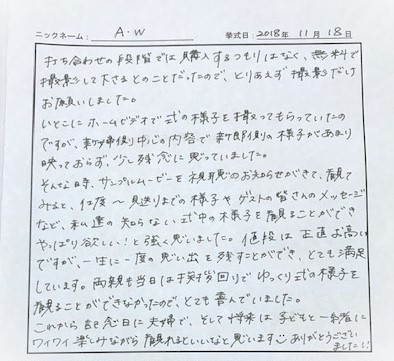 ニックネーム： A・W 挙式日：2018年 11月 18日
打ち合わせの段階では購入するつもりはなく、無料で
撮影して下さるとのことだったので、とりあえず撮影だけ
お願いしました。
いとこにホームビデオで式の様子を撮ってもらっていたの
ですが、新婦側中心の内容で新郎側の様子があまり
映っておらず、少し残念に思っていました。
そんな時、サンプルムービーを視聴のお知らせがきて、観て
みると、仕度〜見送りまでの様子やゲストの皆さんのメッセージ
など、私達の知らない式中の様子を観ることができ
やっぱり欲しい！と強く思いました。値段は正直お高い
ですが、一生に一度の思い出を残すことができ、とても満足
しています。両親も当日は挨拶回りでゆっくり式の様子を
観ることができなかったので、とても喜んでいました。
これから記念日に夫婦で、そして将来は子どもと一緒に
ワイワイ楽しみながら観れるといいなと思います ありがとうござい
ました！！